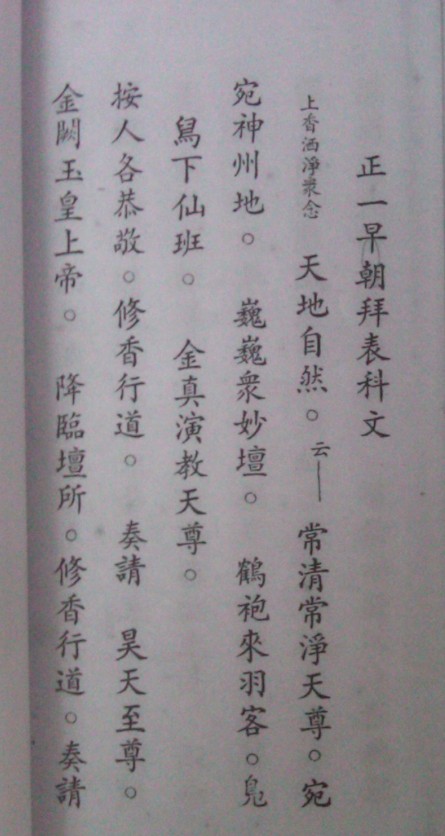 正一早朝拜表科文
上香洒淨眾念 天地自然。云—— 常清常淨天尊。宛
宛神州地。 巍巍衆妙壇。 鶴袍來羽客。鳬
舃下仙班。 金真演教天尊。
按人各恭敬。修香行道。 奏請 昊天至尊。
金闕玉皇上帝。 降臨壇所。修香行道。奏請